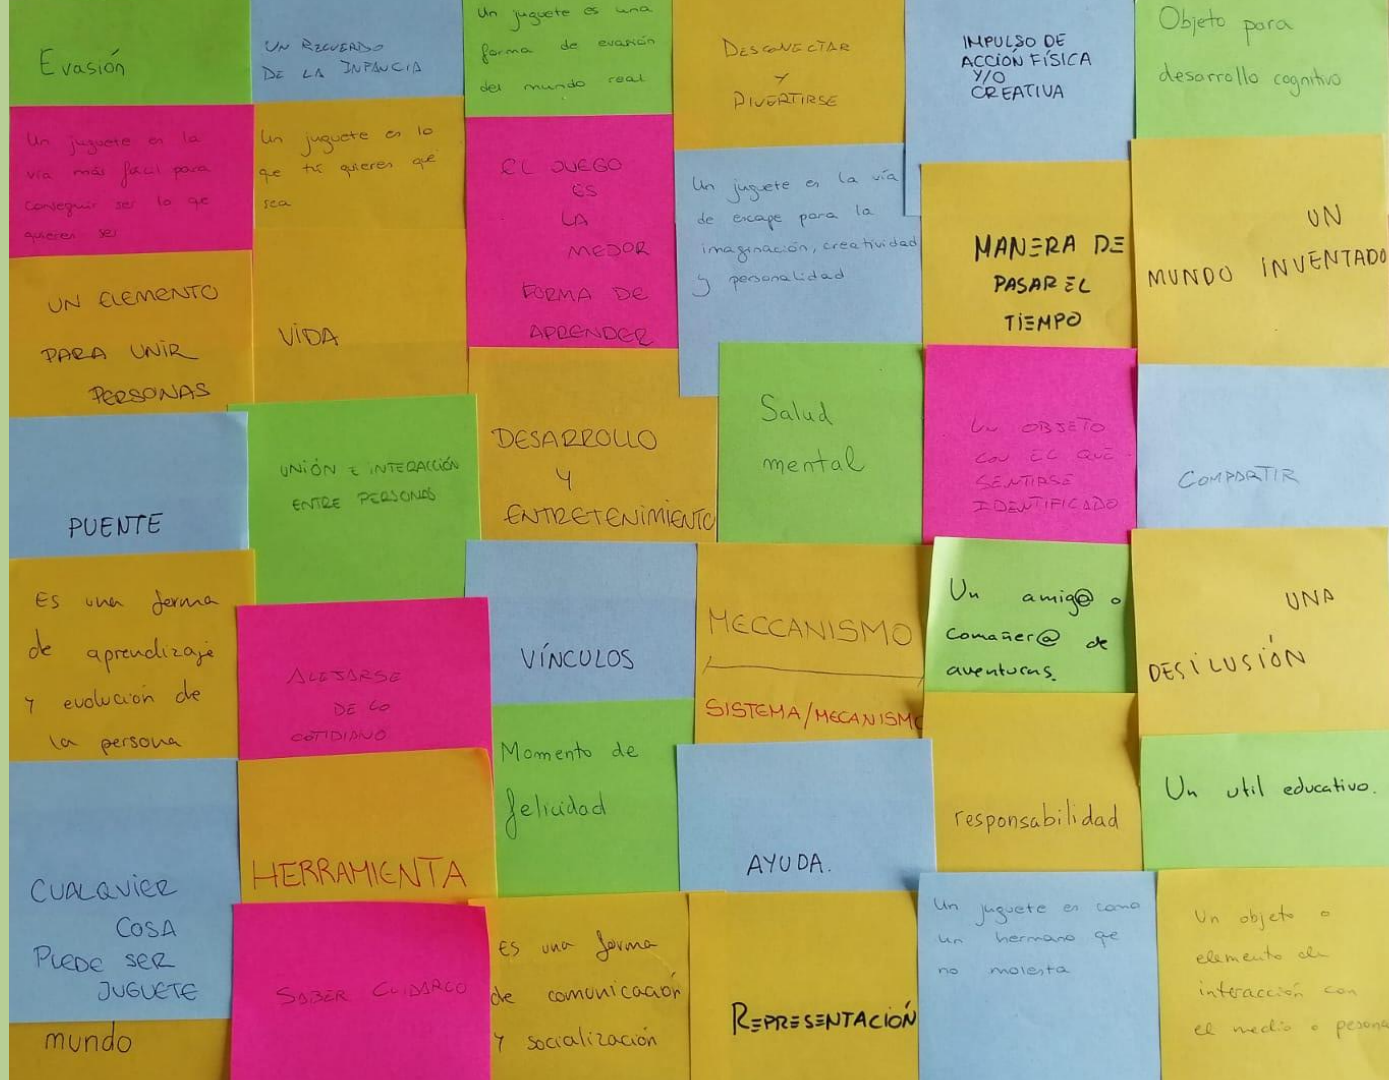 Evasión
UN RECUERDO
DE LA INFANCIA
Un juguete es una
forma de evasión
del mundo real
DESCONECTAR
Y
DIVERTIRSE
IMPULSO DE
ACCIÓN FÍSICA
Y/O
CREATIVA
Objeto para
desarrollo cognitivo
Un juguete es la
vía más fácil para
conseguir ser lo qe
quieres ser
Un juguete es lo
que tú quieres qe
sea
EL JUEGO
ES
LA
MEDOR
FORMA DE
APRENDER
Un juguete es la vía
de escape para la
imaginación, creatividad
y personalidad
MANERA DE
PASAR EL
TIEMPO
UN
MUNDO INVENTADO
UN ELEMENTO
PARA UNIR
PERSONAS
VIDA
DESARROLLO
Y
ENTRETENIMIENTO
Salud
mental
UN OBJETO
CON EL QUE
SENTIRSE
IDENTIFICADO
COMPARTIR
PUENTE
UNIÓN E INTERACCIÓN
ENTRE PERSONAS
ES una forma
de aprendizaje
y evolución de
la persona
ALEJARSE
DE LO
COTIDIANO
VÍNCULOS
MECCANISMO
SISTEMA/MECANISMO
Un amig@ o
comañer@ de
aventuras.
UNA
DESILUSIÓN
Momento de
felicidad
responsabilidad
Un util educativo.
CUALQUIER
COSA
PUEDE SER
JUGUETE
HERRAMIENTA
AYUDA.
mundo
SABER CUIDARLO
ES una forma
de comunicación
y socialización
REPRESENTACIÓN
Un juguete es como
un hermano qe
no molesta
Un objeto o
elemento de
interacción con
el medio o